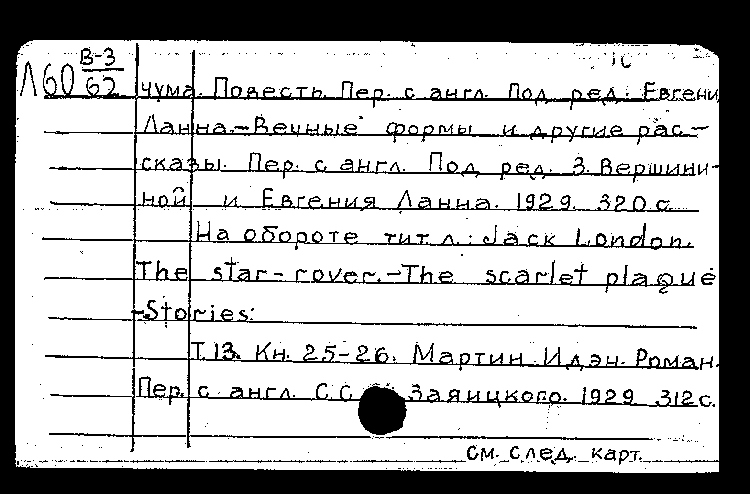 Л60 В-3
62 чума. Повесть. Пер. с англ. Под ред. Евгени
Ланна.-Вечные формы и другие рас-
сказы. Пер. с англ. Под ред. З. Вершини-
ной и Евгения Ланна. 1929. 320 с.
На обороте тит. л.: Jack London.
The star-rover.-The scarlet plaque
-Stories:
Т.13. Кн. 25-26. Мартин Идэн. Роман.
Пер. с англ. С.С. Заяицкого. 1929 312 с.
См. след. карт.